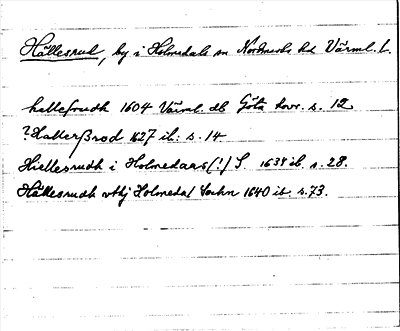 Hällesrud, by i Holmedals sn Nordmarks hd Värml. l.
hallessrudh 1604 Värml. db Göta hovr. s. 12
? Hallerßrod 1627 ib: s. 14
Hiellesrudh i Holmedaas (!) S. 1634 ib. s. 28.
Hällesrudh vthj Holmedal Sochn 1640 ib. s. 73.